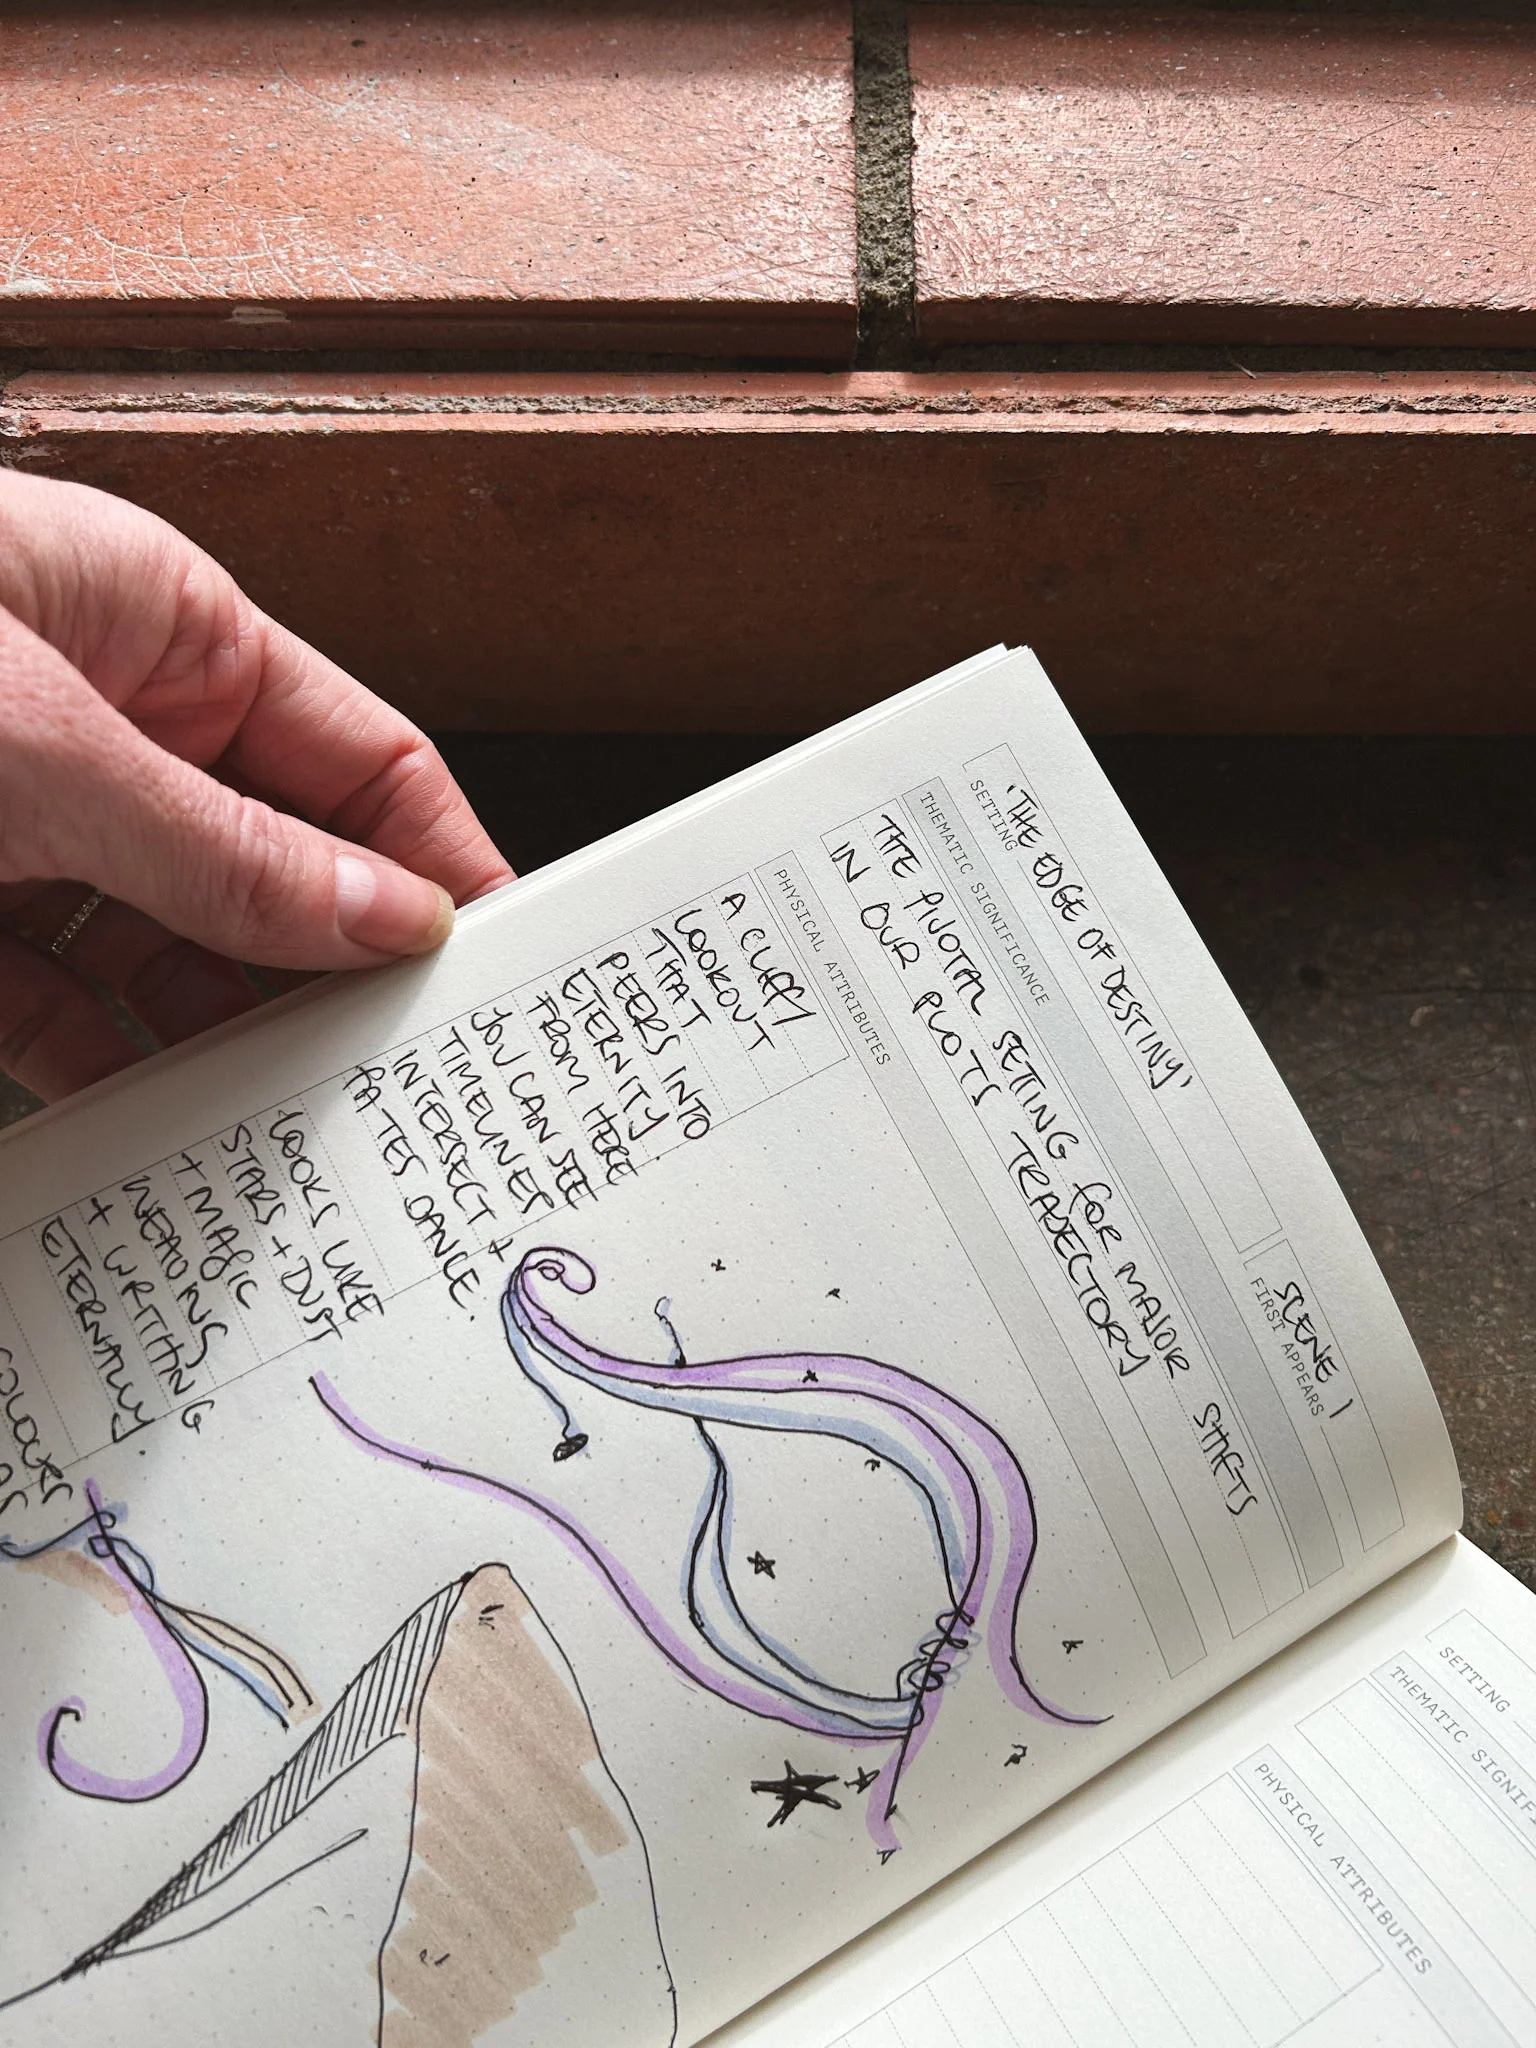 'THE EDGE OF DESTINY'
SETTING
SCENE 1
FIRST APPEARS
THEMATIC SIGNIFICANCE
THE PIVOTAL SETTING FOR MAJOR SHIFTS
IN OUR PLOTS TRAJECTORY
PHYSICAL ATTRIBUTES
A CLIFFY
LOOKOUT
THAT
PEERS INTO
ETERNITY.
FROM HERE
YOU CAN SEE
TIMELINES
INTERSECT +
FATES DANCE.
LOOKS LIKE
STARS + DUST
+ MAGIC
WEAVING
+ WRITHING
ETERNALLY.
COLOURS
SETTING
THEMATIC SIGNIF
PHYSICAL ATTRIBUTES